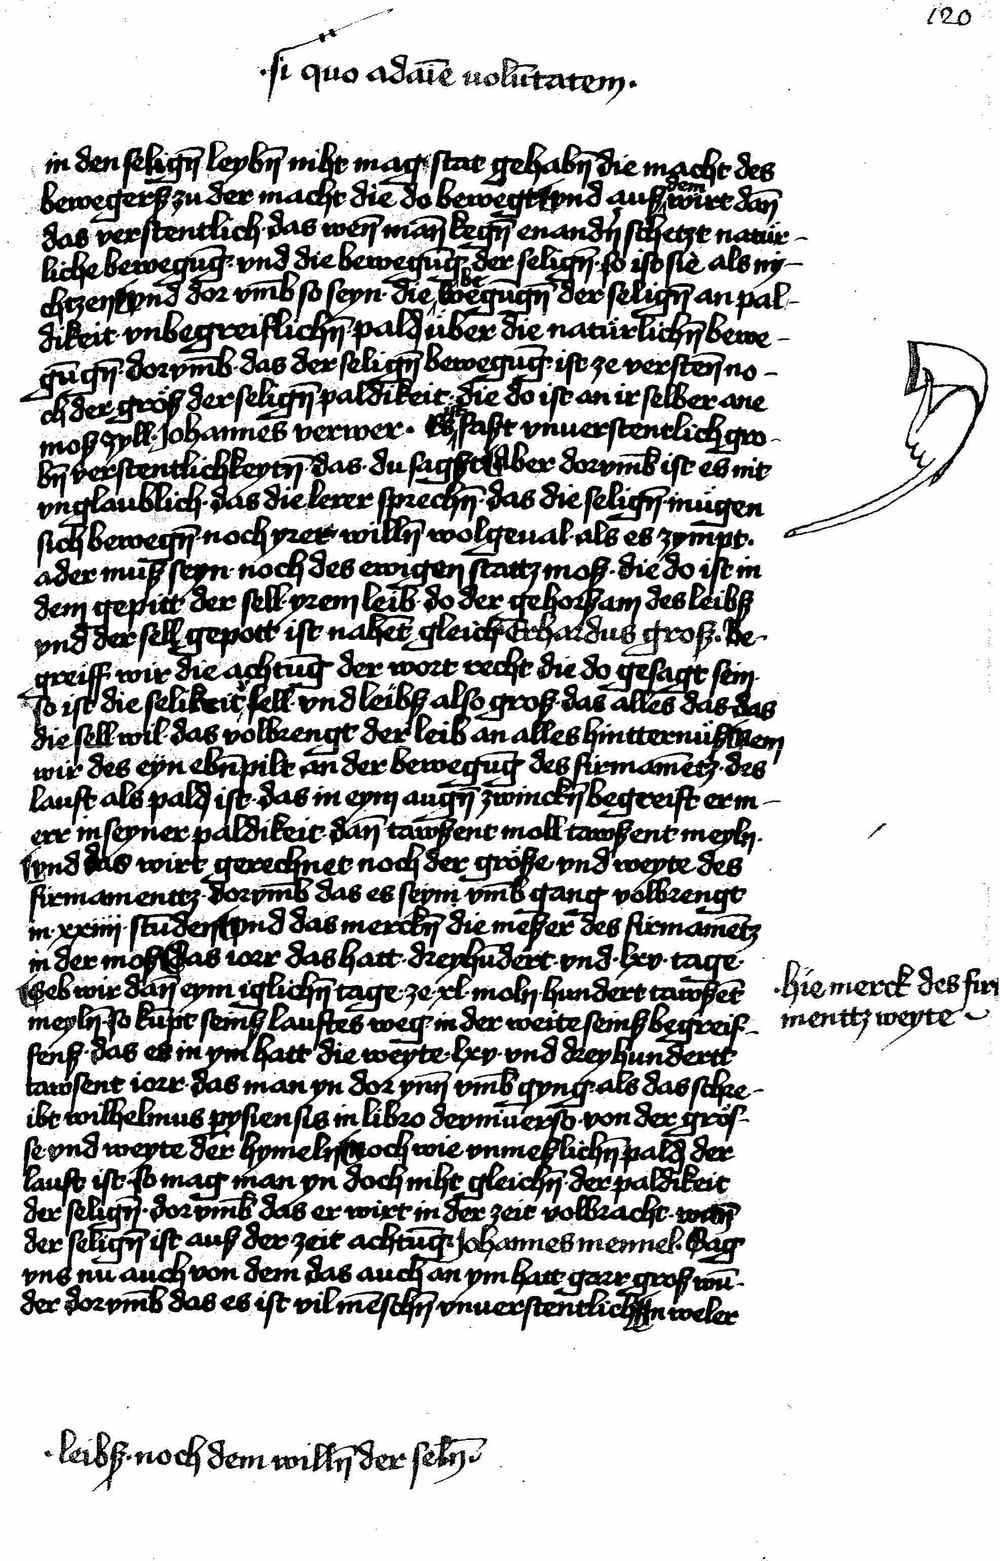 120
·si quo ad aīe uolūtatem·
in den seligñ leybñ niht mag stat gehabñ die macht des
bewegerß zu der macht die do bewegt vnd auß dem wirt dañ
das verstentlich· das weñ mañ kegñ enandñ schetzt natür-
liche bewegūg· vnd die bewegūg der seligñ· so ist sie als ny-
chtzen vnd dor vmb so seyn· die be wegūgñ der seligñ an pal-
dikeit vnbegreiflichñ· pald über die natürlichñ bewe-
gūgñ· dorvmb· das der seligñ bewegūg· ist ze versteñ no-
ch der größ der seligñ paldikeit· die do ist an ir selber ane
moß zyll· Johannes verwer· Es ist fast vnuerstentlich gro-
bñ verstentlichkeytñ· das· du sagst Aber dorvmb ist es nit
vnglaublich· das die lerer sprechñ· das die seligñ· mügen
sich bewegñ· noch yrer willñ wolgeual· als es zympt·
ader muß seyn· noch des ewigen stattz moß· die do ist in
dem gepitt der sell· yrem leib· do der gehorsam des leibß
vnd der sell gepott ist nahet gleich Erhardus groß· Be-
greiff wir die achtūg der wort recht die do gesagt sein·
so ist die selikeit sell· vnd leibß also groß· das alles das· das
die sell wil· das volbrengt der leib an alles hintternüß Nem
wir des eyn ebñpilt an der bewegūg des firmamētz· des
lauft als pald ist· das in eym augñ zwinckñ begreift er m-
err in seyner paldikeit dañ tawsent moll tawsent meylñ·
vnd das wirt gerechnet noch der größe vnd weyte des
firmamenttz· dorvmb das es seym vmb gang volbrengt
in· xxiiii· stūden vnd das merckñ die meßer des firmamētz
in der moß Das iorr das hatt· dreyhūdert· vnd· lxv· tage·
Geb wir dañ eym iglichñ tage· ze· xl· moln· hundert tawsēt
meylñ· so kūpt seinß lauftes weg· in der weite seinß begreif-
fenß· das er in ym hatt die weyte· lxv· vnd dreyhundertt
tawsent iorr· das man yn dor ynn vmb gyng· als das schre-
ibt wilhelmus pysiensis in libro deyniuerso· von der grös-
se vnd weyte der hymeln Noch wie vnmeßlichñ pald der
lauft ist· so mag man yn doch niht gleichñ· der paldikeit
der seligñ· dorvmb das er wirt in der zeit volbracht· wañ
der seligñ ist auß der zeit achtūg· Johannes mennel· Sag
vns nu auch von dem das auch an ym hatt garr groß wū-
der dorvmb das es ist vil mēschñ vnuerstentlich In weler
·hie merck des fir
menttz weyte
·leibß· noch dem willñ der selñ·